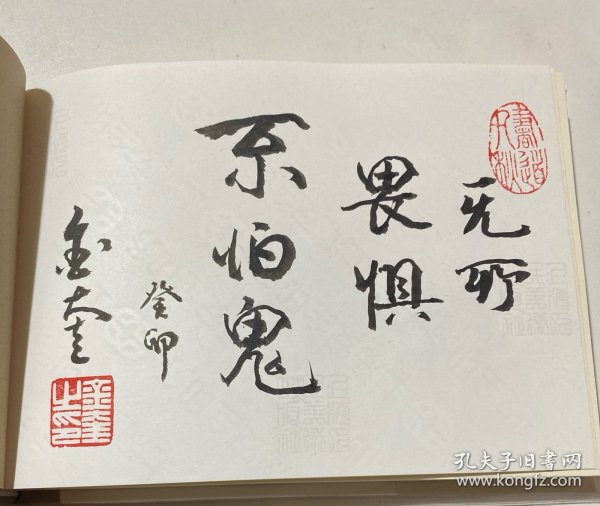 无所
畏惧
不怕鬼
癸卯
金奎
金奎之印
孔夫子旧书网
www.kongfz.com